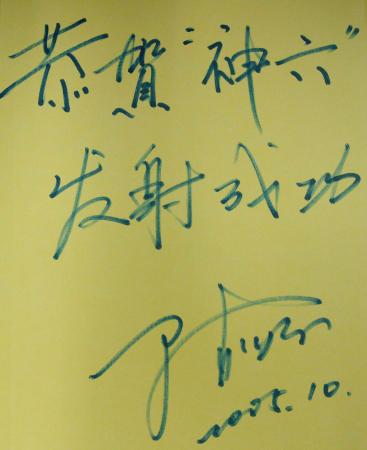 恭賀“神六”
发射成功
2005.10.